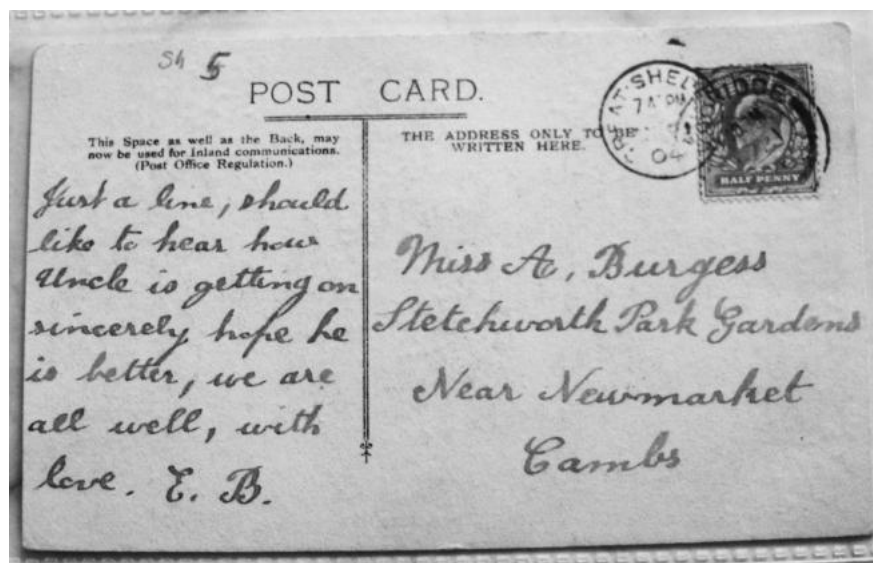 Sh 5
POST CARD.
This Space as well as the Back, may
now be used for Inland communications.
(Post Office Regulation.)
THE ADDRESS ONLY TO BE
WRITTEN HERE.
GREAT SHEL
7 PM
04
HALF PENNY
Just a line, should
like to hear how
Uncle is getting on
sincerely hope he
is better, we are
all well, with
love. E. B.
Miss A, Burgess
Stetchworth Park Gardens
Near Newmarket
Cambs